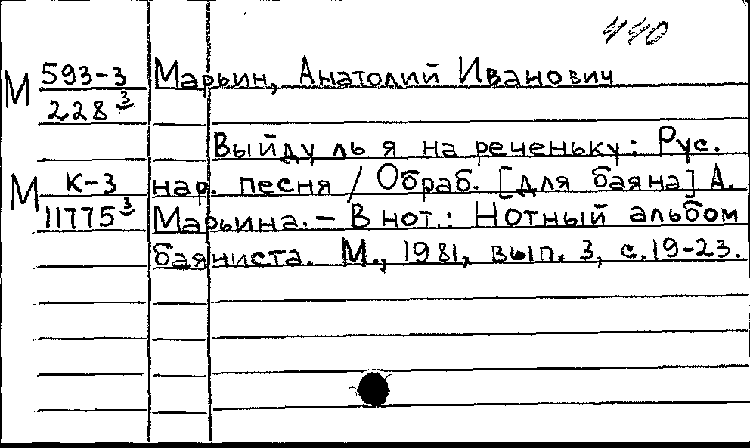 440
М 593-3 Марьин, Анатолий Иванович
228³
Выйду ль я на реченьку: Рус.
М К-3 нар. песня / Обраб. [для баяна] А.
11775³ Марьина. – В нот.: Нотный альбом
баяниста. М., 1981, вып. 3, с. 19-23.